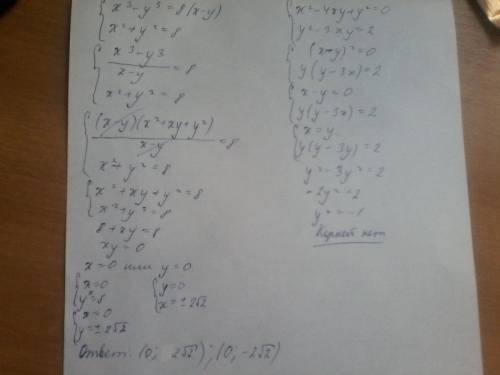 { x³-y³=8(x-y)
{ x²+y²=8
{ x³-y³ / x-y =8
{ x²+y²=8
{ (x-y)(x²+xy+y²) / x-y =8
{ x²+y²=8
{ x²+xy+y²=8
{ x²+y²=8
8+xy=8
xy=0
x=0 или y=0
{ x=0
{ y²=8
{ x=0
{ y=±2√2
{ y=0
{ x=±2√2
Ответ: (0; 2√2); (0; -2√2)
{ x²-4xy+y²=0
{ y²-3xy=2
{ (x-y)²=0
{ y(y-3x)=2
{ x-y=0
{ y(y-3x)=2
{ x=y
{ y(y-3y)=2
y²-3y²=2
-2y²=2
y²=-1
Корней нет